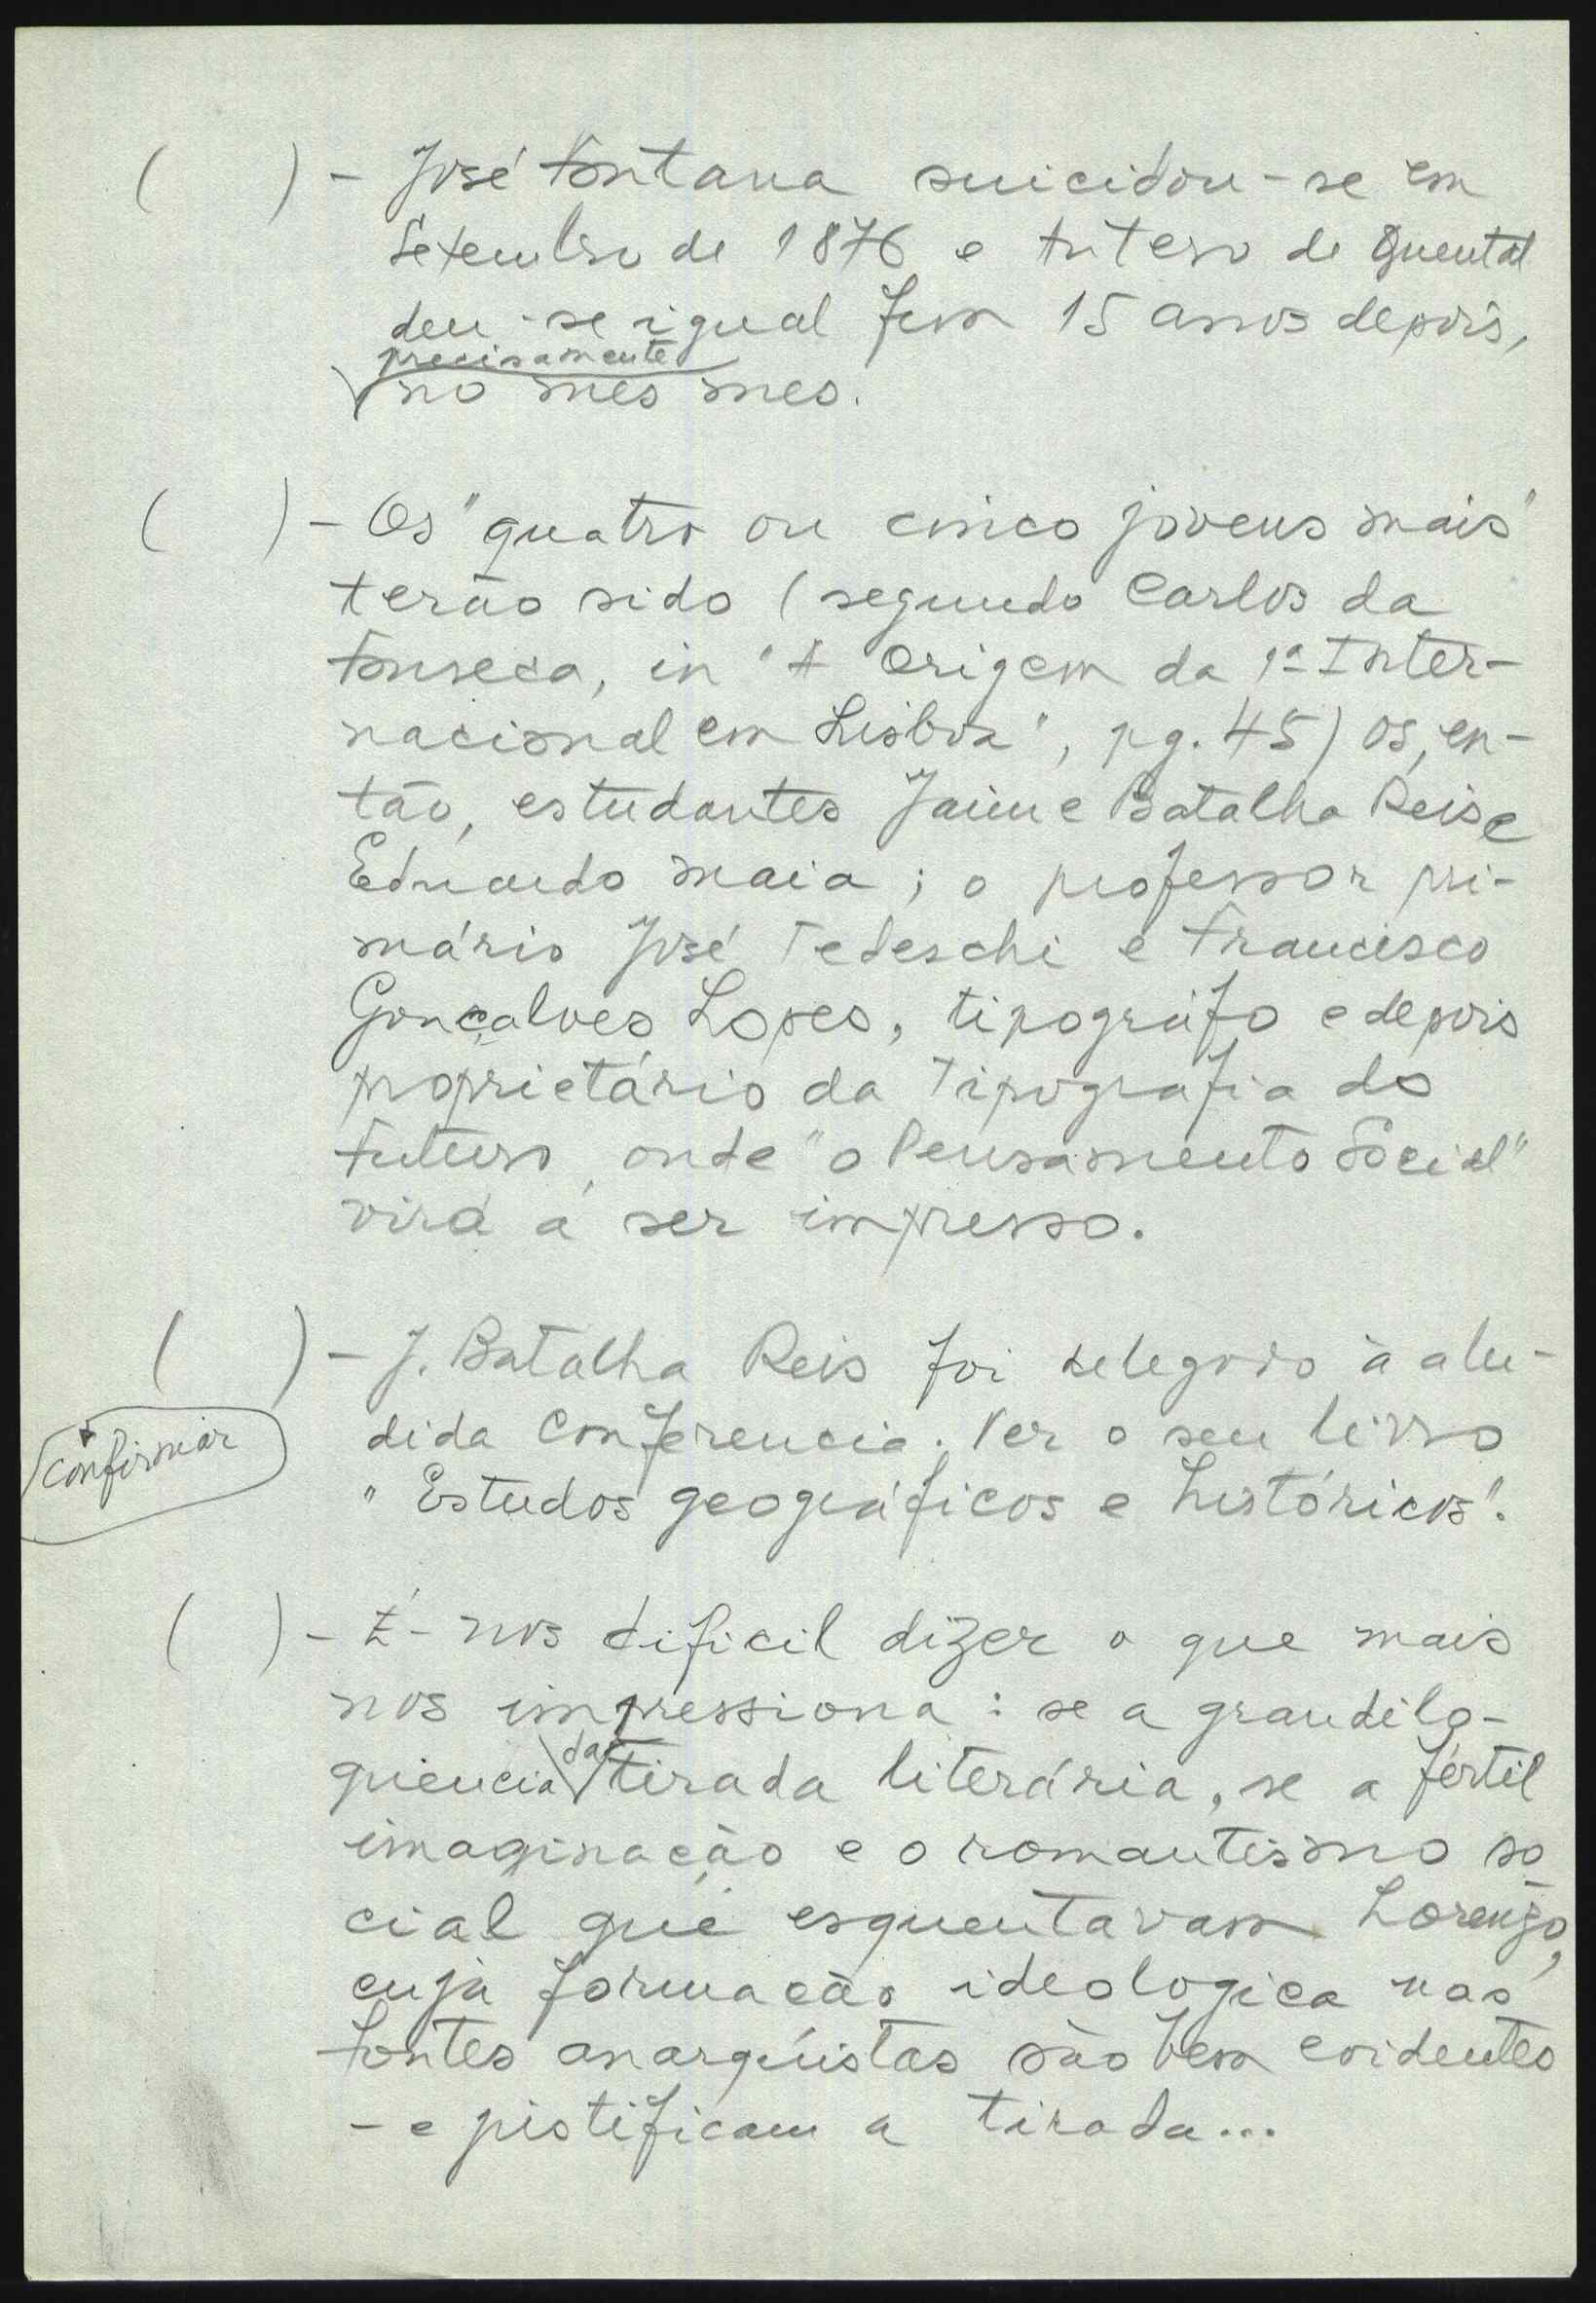 ( ) - José Fontana suicidou-se em
Setembro de 1876 e Antero de Quental
deu-se igual fim 15 anos depois,
precisamente
no mês mes.
( ) - Os "quatro ou cinco jovens mais"
terão sido (segundo Carlos da
Fonseca, in "A Origem da 1ª Inter-
nacional em Lisboa", pg. 45) os, en-
tão, estudantes Jaime Batalha Reis e
Eduardo Maia; o professor pri-
mário José Tedeschi e Francisco
Gonçalves Lopes, tipográfo e depois
proprietário da Tipografia do
Futuro, onde "o Pensamento Social"
virá a ser impresso.
( ) - J. Batalha Reis foi delegado à alu-
dida Conferencia. Ver o seu livro
confirmar
"Estudos geográficos e históricos".
( ) - É-nos dificil dizer o que mais
nos impressiona: se a grandilo-
da
quencia tirada literária, se a fértil
imaginação e o romantismo so
cial que esquentavam Lorenzo,
cuja formação ideologica nas
fontes anarquistas são bem evidentes
- e justificam a tirada...